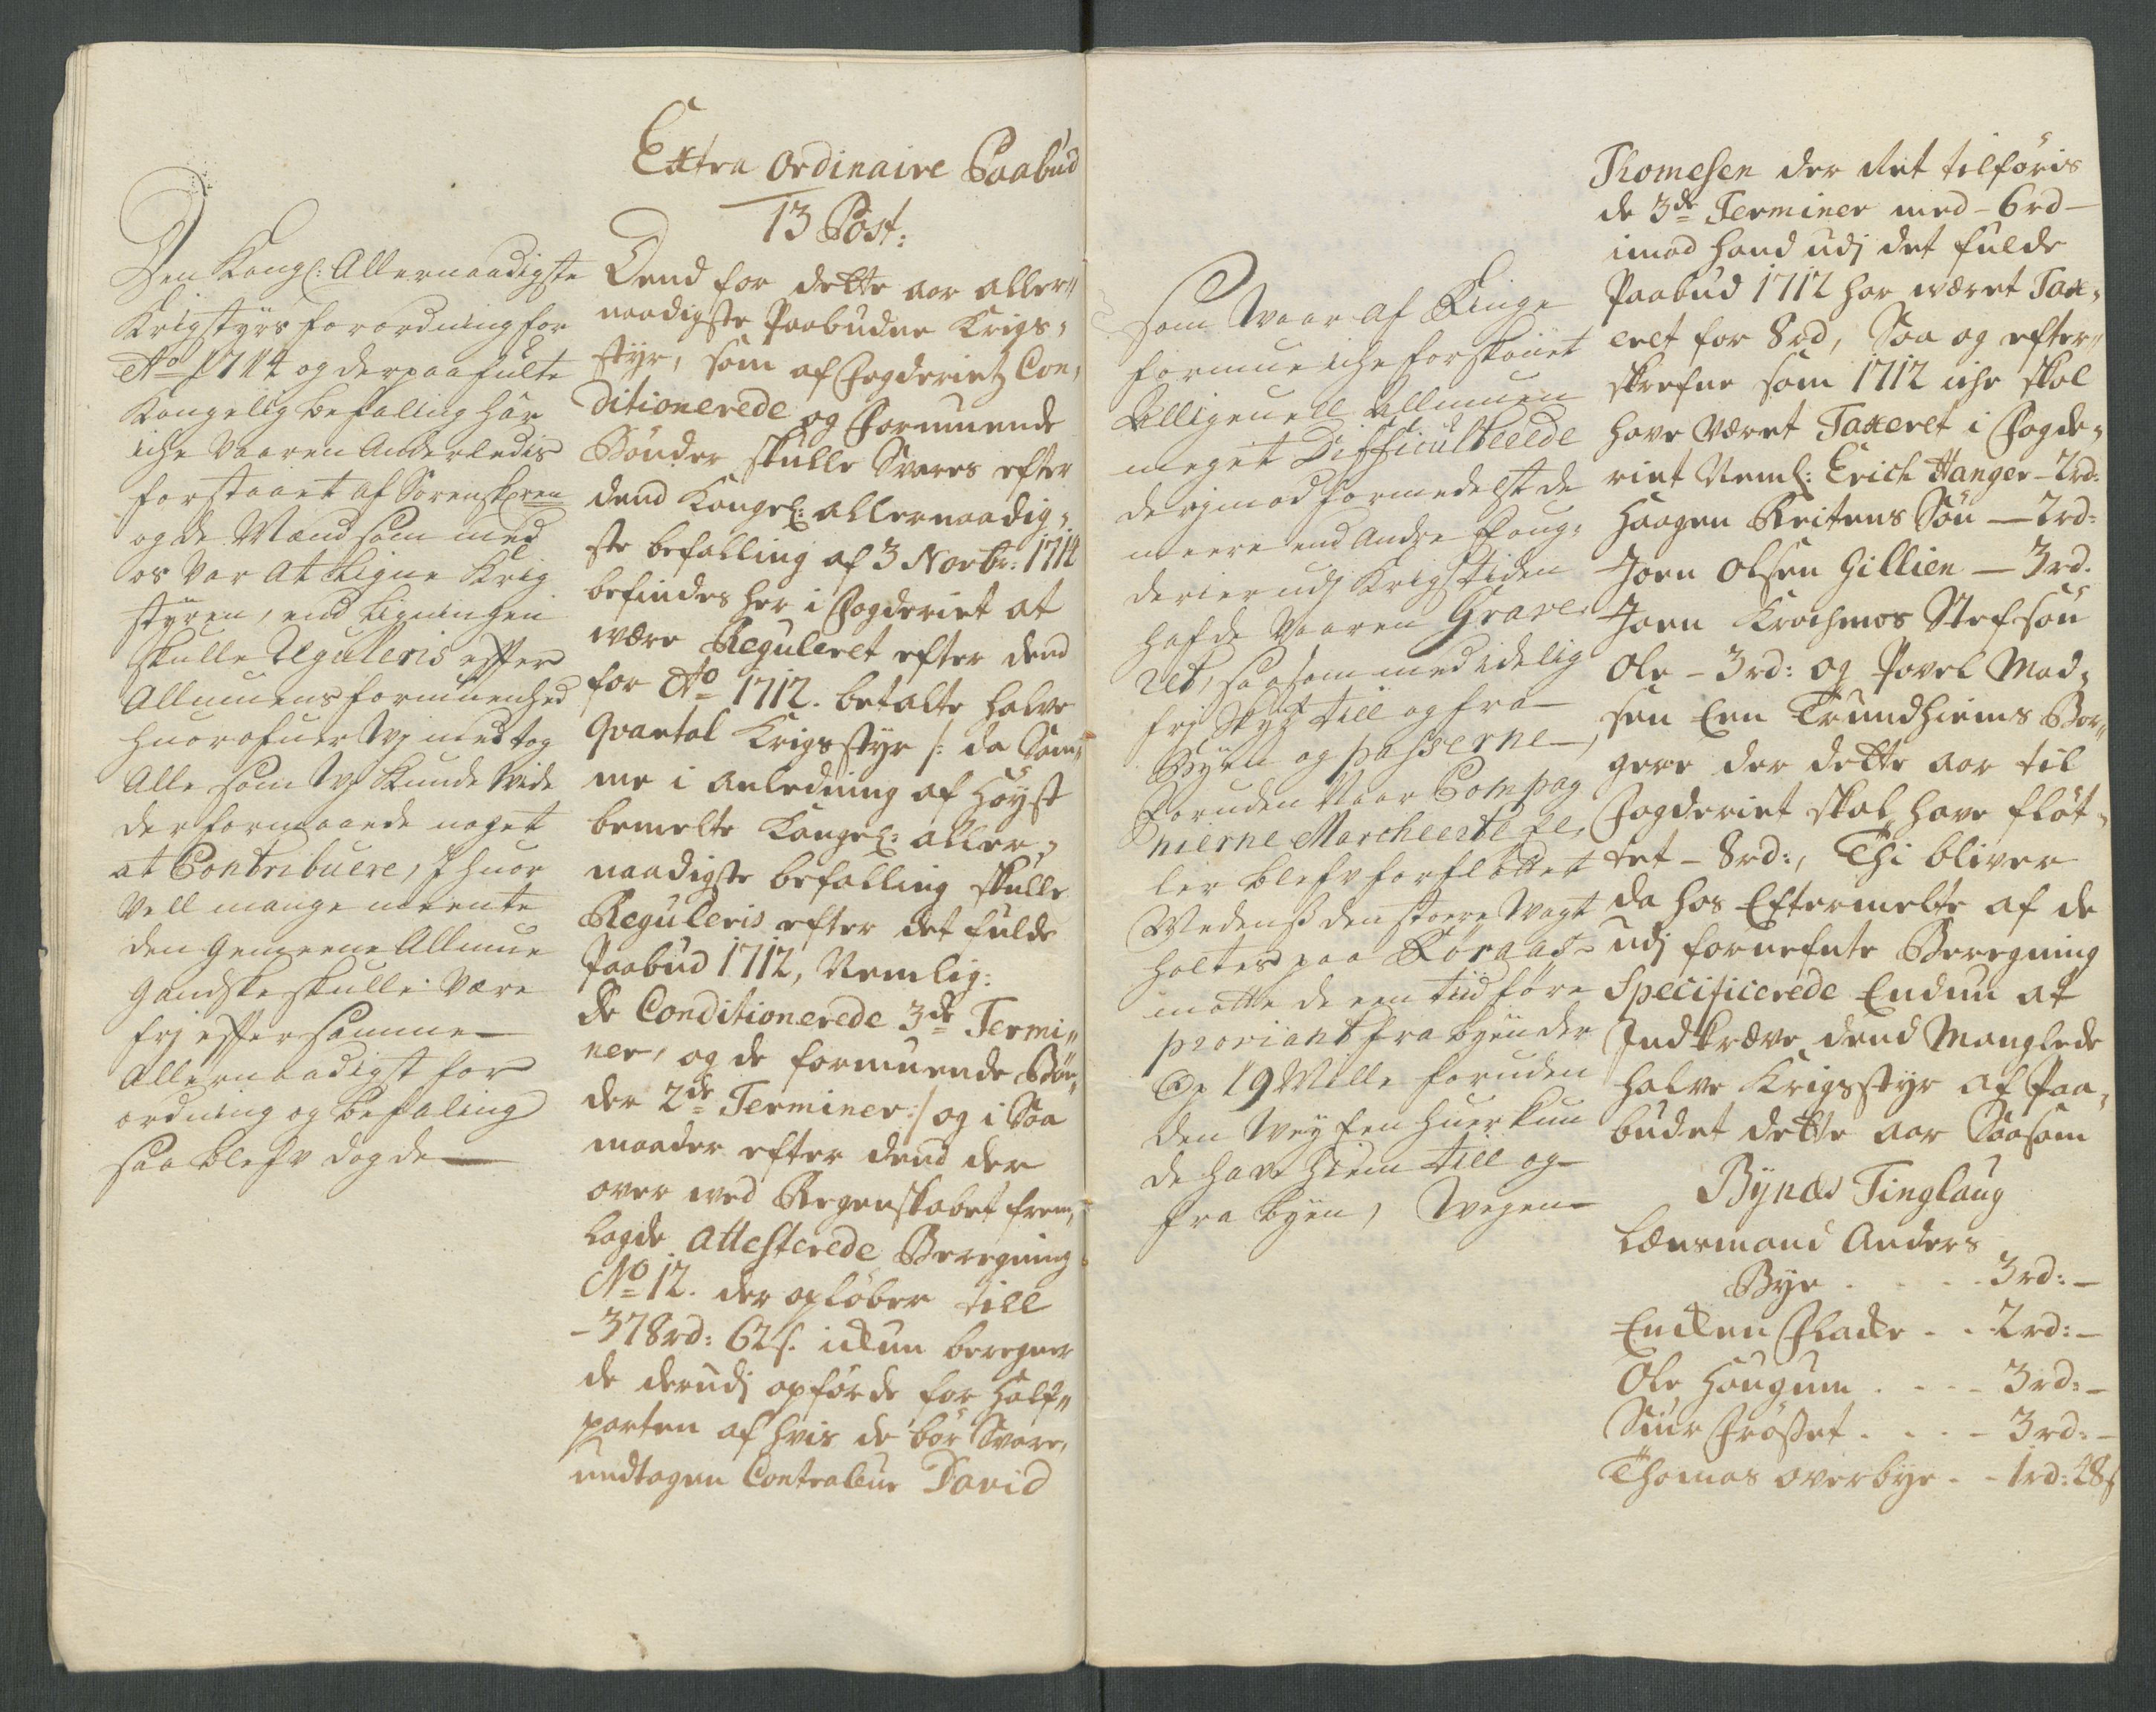 Extra Ordinaire Paabud
13 Post:
Den Kongl: Allernaadigste
Krigstyrs forordning for
Ao 1714 og derpaa fulte
Kongelig befaling har
iche vaaren Anderledis
forstaaet af Sorenskrfren
og de Mænd som med
os var at ligne Krig
styren, end ligningen
skulle Reguleris effter
Allmuens formuenhed
huorofuer wj med tog
Alle som wj kunde vide
der formaaede noget
at Contribuere, J huor
vell mange meente
den gemeene Allmue
gandske skulle være
frj effter samme
Allernaadigst for
ordning og befaling
saa blefv dog de
Dend for dette aar aller„
naadigste Paabudne Krigs„
styr, som af Fogderietz Con„
ditionerede og Formuende
Bönder skulle Svares efter
dend Kongel: allernaadig„
ste befalling af 3 Novbr: 1714
befindes her i Fogderiet at
være Reguleret efter dend
for Ao 1712. betalte halve
Qvartal Krigsstyr /: da Sam„
me i anledning af Höyst
bemelte Kongel: aller„
naadigste befalling skulle
Reguleris efter det fulde
Paabud 1712, Nemlig:
de Conditionerede 3de Termi„
ner, og de formuende Bön„
der 2de Terminer:/ og i Saa
maader efter dend der
over ved Regenskabet frem„
lagde Attesterede Beregning
No 12. der opløber till
– 378rd: 62s. ickun beregner
de derudj opförde for Half„
parten af hvis de bör Svare,
undtagen Contraleur David
som waar af Ringe
formue iche forskaanet
Alligeuell Allmuen
meget Difficulterede
derjmod formedelst de
meere end Andre Foug„
derier udj Krigstiden
hafde vaaren Grave„
ret, saasom med idelig
frj skyts till og fra
Byen og passerne
foruden naar Compag
nierne Marcheerte el„
ler blefv forfløttet
Medens den store wagt
holtes paa Røraas
motte de een tiid føre
proviant fra byen der
Op 19 Mille foruden
den wey een huer kun
de have hiem till og
fra byen, wegen
Thomesen der Aet tilföris
de 3de Terminer med – 6rd –
imod hand udj det fulde
Paabud 1712 har været Tax„
eret for 8rd, Saa og efter„
skrefne som 1712 iche skal
have været Taxeret i Fogde„
riet Neml: Erich Hanger – 2rd:
Haagen Reitens Sön – 2rd:
Joen Olsen Gillien – 3rd.
Joen Krochmos Stefsön
Ole – 3rd: og Povel Mad„
sen Een Trundhiems Bor„
gere der dette aar til
Fogderiet skal have flöt„
tet – 8rd:, Thi bliver
da hos Eftermelte af de
udj fornefnte Beregning
Specificerede Endnu at
Indkræve dend Manglede
halve Krigsstyr af Paa„
budet dette aar Saasom
Bynæs Tinglaug
Lænsmand Anders
Bye . . . . 3rd: –
Encken Flacke . . 2rd: –
Ole Haugum . . . 3rd: –
Siur Frösset . . . 3rd: –
Thomas overbye . . 1rd: 48s